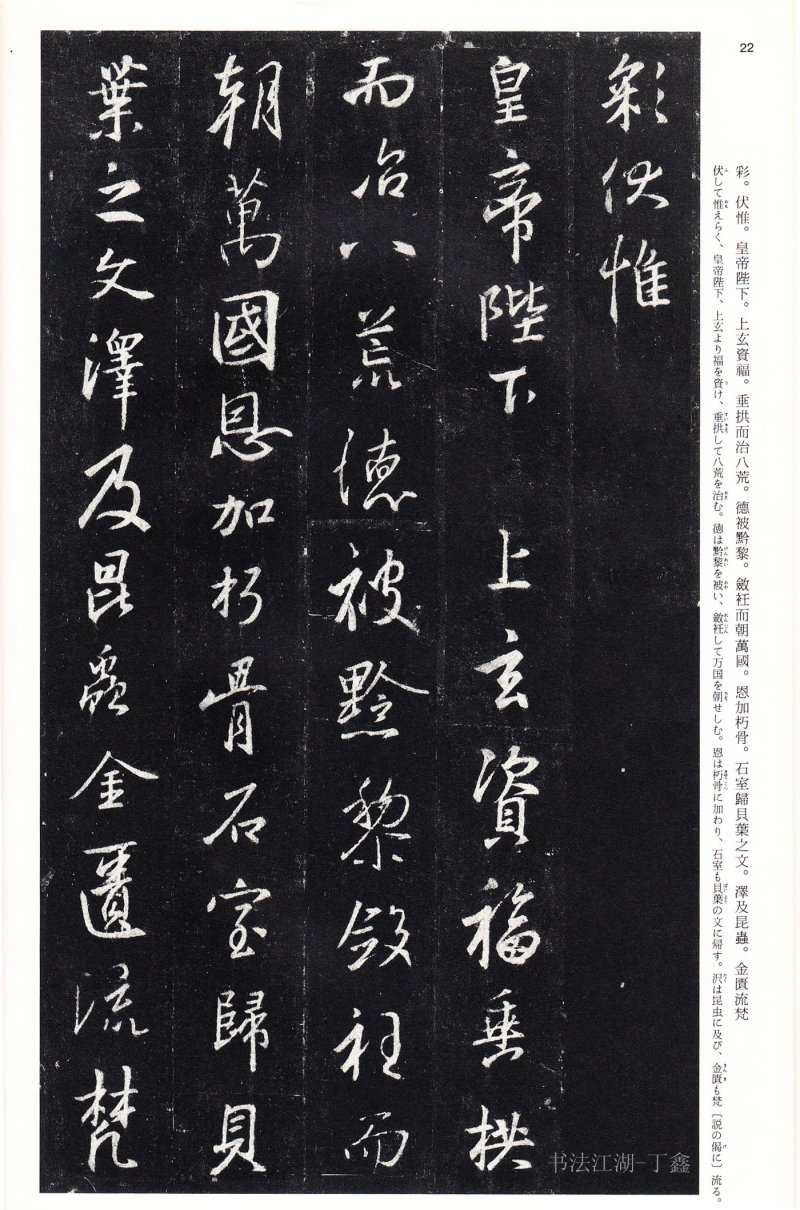 22
彩。伏惟。皇帝陛下。上玄資福。垂拱而治八荒。德被黔黎。斂衽而朝萬國。恩加朽骨。石室歸貝葉之文。澤及昆蟲。金匱流梵
伏して惟えらく、皇帝陛下、上玄より福を資け、垂拱して八荒を治む。徳は黔黎を被い、斂衽して万国を朝せしむ。恩は朽骨に加わり、石室も貝葉の文に帰す。沢は昆虫に及び、金匱も梵〔説の偈に〕流る。
彩伏惟
皇帝陛下 上玄資福垂拱
而治八荒德被黔黎斂衽而
朝萬國恩加朽骨石室歸貝
葉之文澤及昆蟲金匱流梵
书法江湖-丁鑫